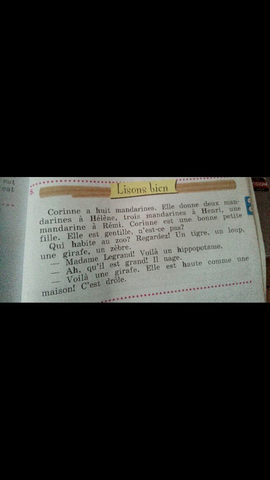 Lisons bien
Corinne a huit mandarines. Elle donne deux man-
darines à Hélène, trois mandarines à Henri, une
mandarine à Rémi. Corinne est une bonne petite
fille. Elle est gentille, n'est-ce pas?
Qui habite au zoo? Regardez! Un tigre, un loup,
une girafe, un zèbre.
— Madame Legrand! Voilà un hippopotame.
— Ah, qu'il est grand! Il nage.
— Voilà une girafe. Elle est haute comme une
maison! C'est drôle.